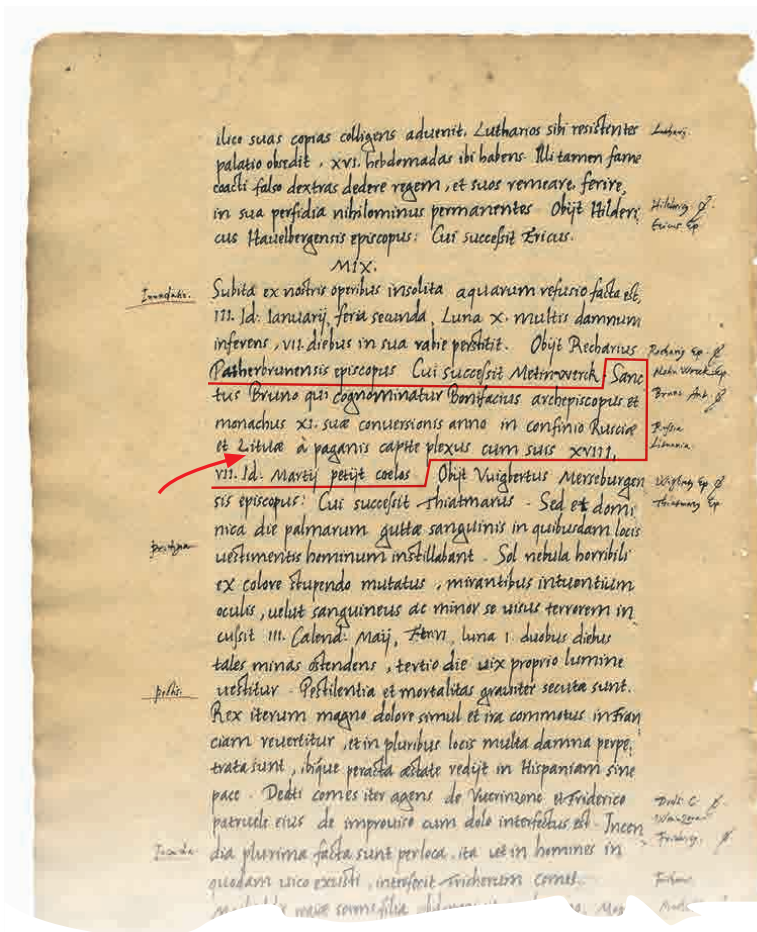 ilico suas copias colligens aduenit. Lutharios sibi resistentes
palatio obsedit, xvi. hebdomadas ibi habens. Illi tamen fame
coacti falso dextras dedere regem, et suos remeare, ferire,
in sua perfidia nihilominus permanentes. Obijt Hilderi
cus Hauelbergensis episcopus: Cui successit Ericus.
MIX.
Subita ex nostris operibus insolita aquarum refusio facta est,
III. Id: Ianuarij, feria secunda, Luna X. multis damnum
inferens, VII. diebus in sua rabie perstitit. Obijt Recharius
Patherbrunensis episcopus Cui successit Metinwerck. Sanc
tus Bruno qui cognominatur Bonifacius archepiscopus et
monachus XI. suæ conuersionis anno in confinio Rusciæ
et Lituæ à paganis capite plexus cum suis XVIII.
VII. Id. Martij petijt coelos. Obijt Vuigbertus Merseburgen
sis episcopus: Cui successit Thiatmarus. Sed et domi
nica die palmarum guttæ sanguinis in quibusdam locis
uestimentis hominum instillabant. Sol nebula horribili
ex colore stupendo mutatus, mirantibus intuentium
oculis, uelut sanguineus ac minor se uisus terrorem in
cussit III. Calend: Maij, luna I duobus diebus
tales minas ostendens, tertio die uix proprio lumine
uestitur. Pestilentia et mortalitas grauiter secuta sunt.
Rex iterum magno dolore simul et ira commotus in Fran
ciam reuertitur, et in pluribus locis multa damna perpe,
trata sunt, ibique peracta æstate redijt in Hispaniam sine
pace. Dedti comes iter agens de Vuerinzone et Friderico
patruele eius de improuiso cum dolo interfectus est. Incen
dia plurima facta sunt per loca, ita ut in hommes in
quodam uico exusti, interfecit Tricherum comes.